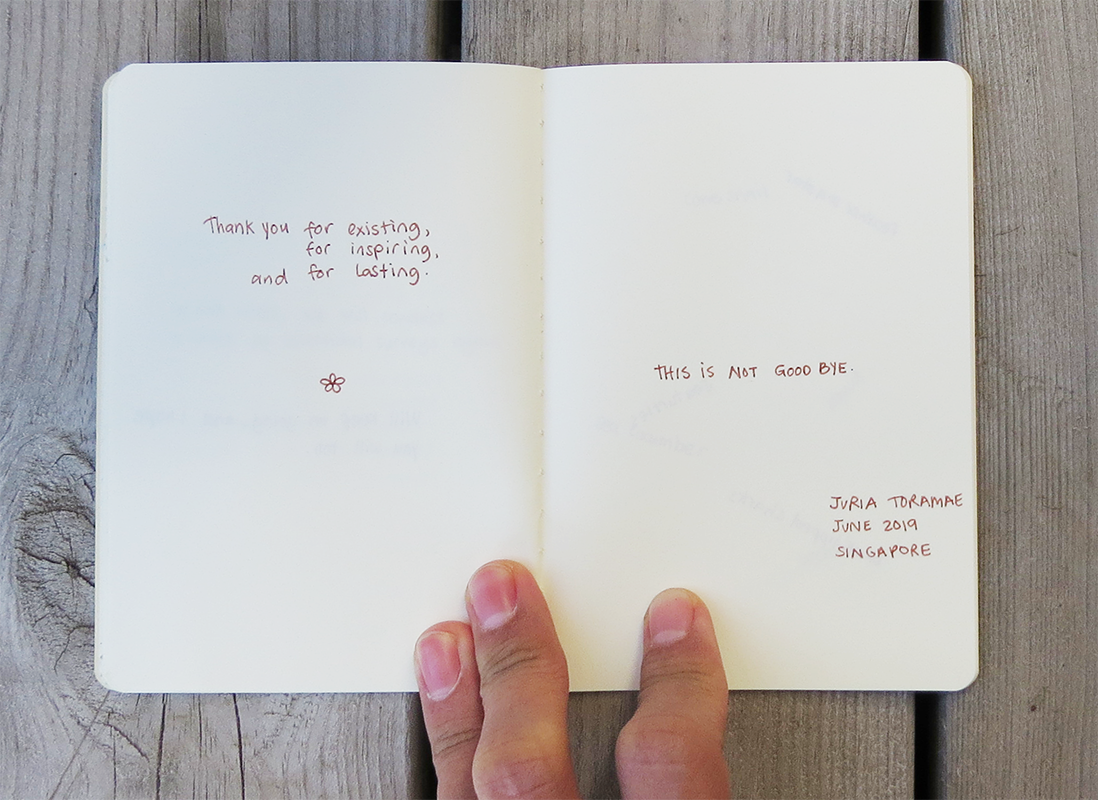 Thank you for existing,
for inspiring,
and for lasting.
THIS IS NOT GOOD BYE.
JURIA TORAMAE
JUNE 2019
SINGAPORE